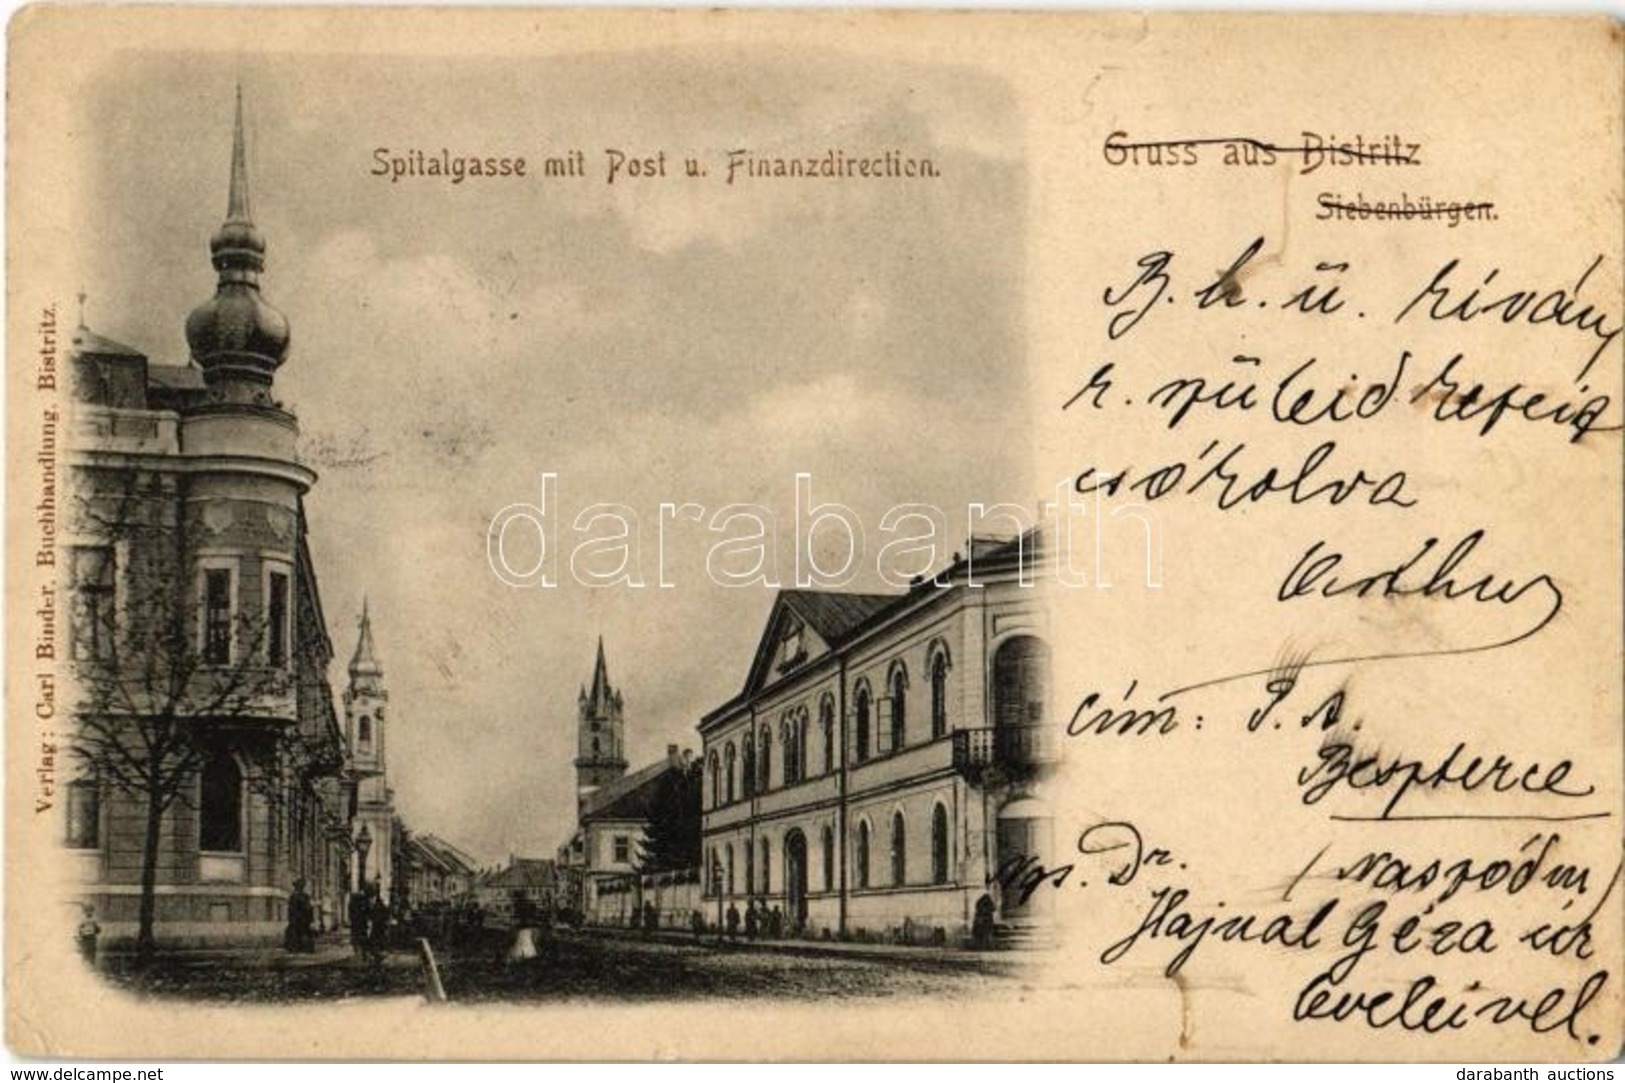 Spitalgasse mit Post u. Finanzdirection.
Gruss aus Bistritz
Siebenbürgen.
B. k. ü. kíván
k. szüleid kezeit
csókolva
Arthur
cím: P. R.
Beszterce
(Naszódm)
Ngs. Dr.
Hajnal Géza úr
leveleivel.
Verlag: Carl Binder, Buchhandlung, Bistritz.
darabanth
www.delcampe.net
darabanth auctions